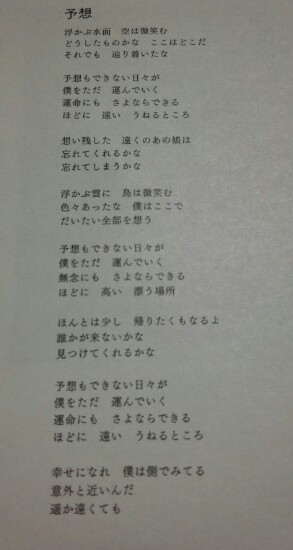 予想
浮かぶ水面　空は微笑む
どうしたものかな　ここはどこだ
それでも　辿り着いたな
予想もできない日々が
僕をただ　運んでいく
運命にも　さよならできる
ほどに　遠い　うねるところ
想い残した　遠くのあの娘は
忘れてくれるかな
忘れてしまうかな
浮かぶ雲に　鳥は微笑む
色々あったな　僕はここで
だいたい全部を想う
予想もできない日々が
僕をただ　運んでいく
無念にも　さよならできる
ほどに　高い　漂う場所
ほんとは少し　帰りたくもなるよ
誰かが来ないかな
見つけてくれるかな
予想もできない日々が
僕をただ　運んでいく
運命にも　さよならできる
ほどに　遠い　うねるところ
幸せになれ　僕は側でみてる
意外と近いんだ
遥か遠くても